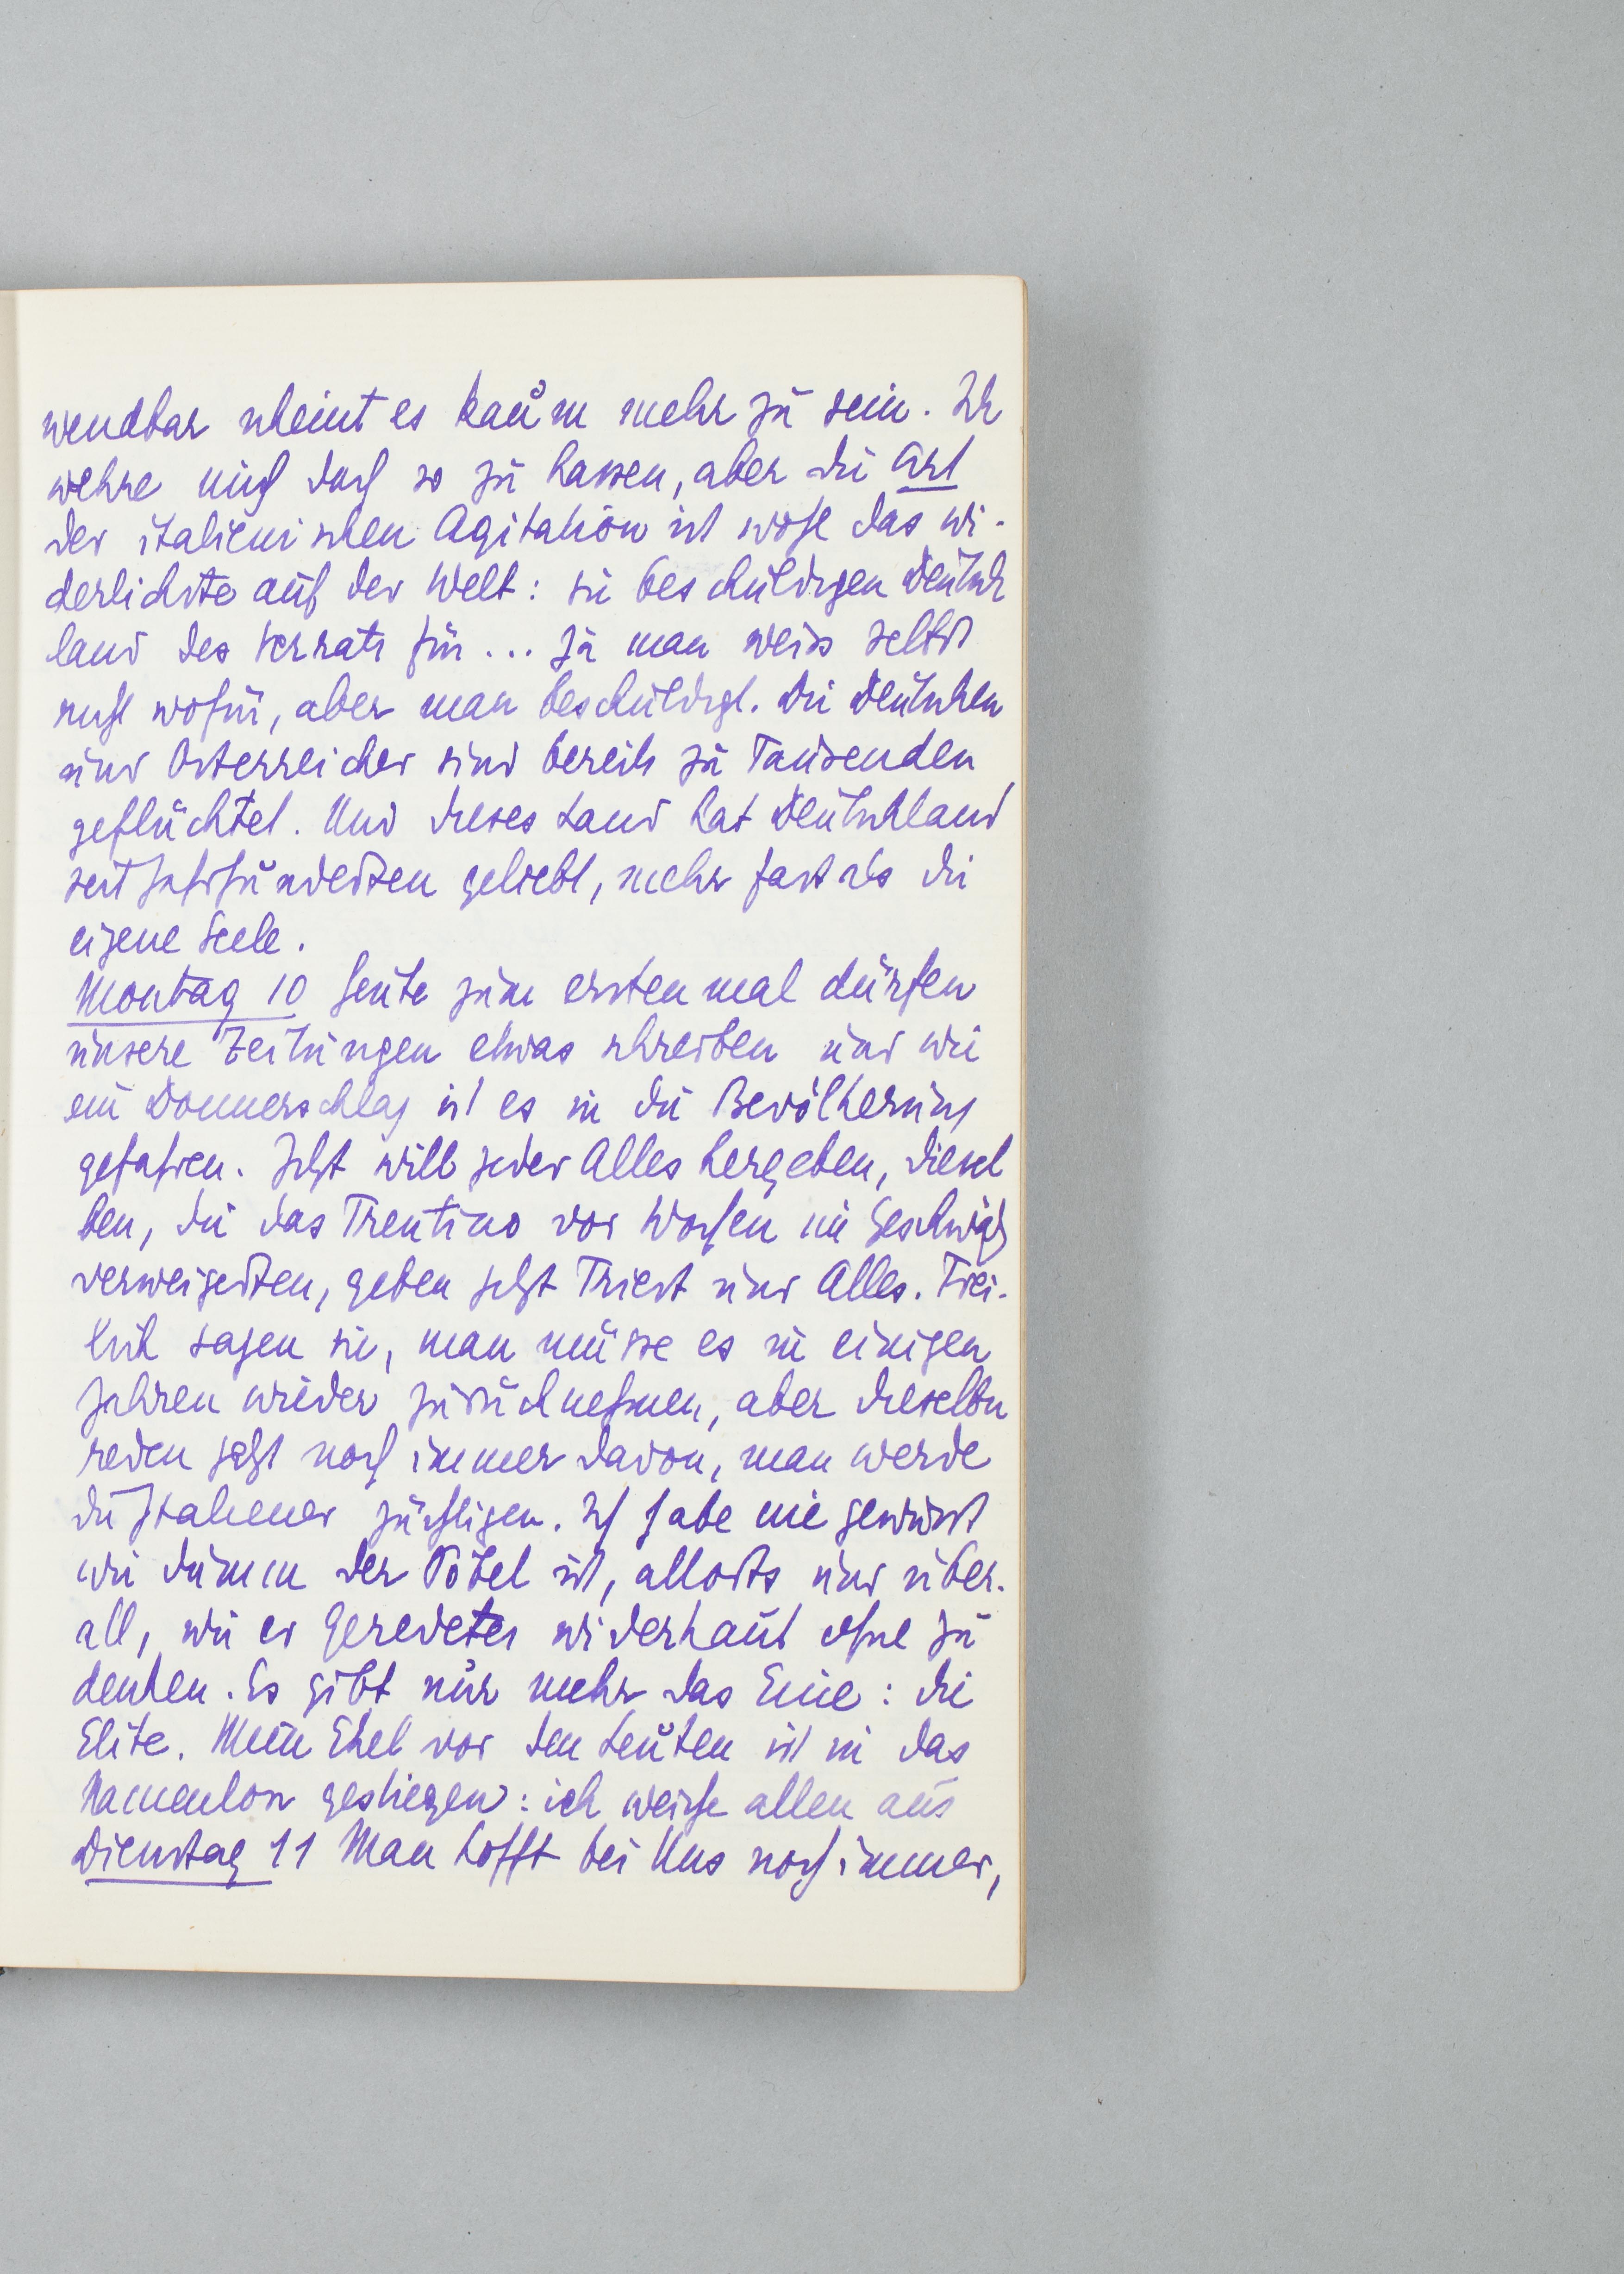 wendbar scheint es kaum mehr zu sein. Ich
wehre mich doch so zu hassen, aber die Art
der italienischen Agitation ist wohl das wi-
derlichste auf der Welt: sie beschuldigen Deutsch
land des Verrats für ... ja man weiss selbst
nicht wofür, aber man beschuldigt. Die Deutschen
und Österreicher sind bereits zu Tausenden
geflüchtet. Und dieses Land hat Deutschland
seit Jahrhunderten geliebt, mehr fast als die
eigene Seele.
Montag 10 Heute zum erstenmal dürfen
unsere Zeitungen etwas schreiben und wie
ein Donnerschlag ist es in die Bevölkerung
gefahren. Jetzt will jeder Alles hergeben, diesel
ben, die das Trentino vor Wochen im Geschwätz
verweigerten, geben jetzt Triest und Alles. Frei-
lich sagen sie, man müsse es in einigen
Jahren wieder zurücknehmen, aber dieselben
reden jetzt noch immer davon, man werde
die Italiener züchtigen. Ich habe nie gewusst
wie dumm der Pöbel ist, allorts und über-
all, wie er Geredetes widerkaut ohne zu
denken. Es gibt nur mehr das Eine: die
Elite. Mein Ekel vor den Leuten ist in das
Namenlose gestiegen: ich weiche allen aus
Dienstag 11 Man hofft bei Uns noch immer,